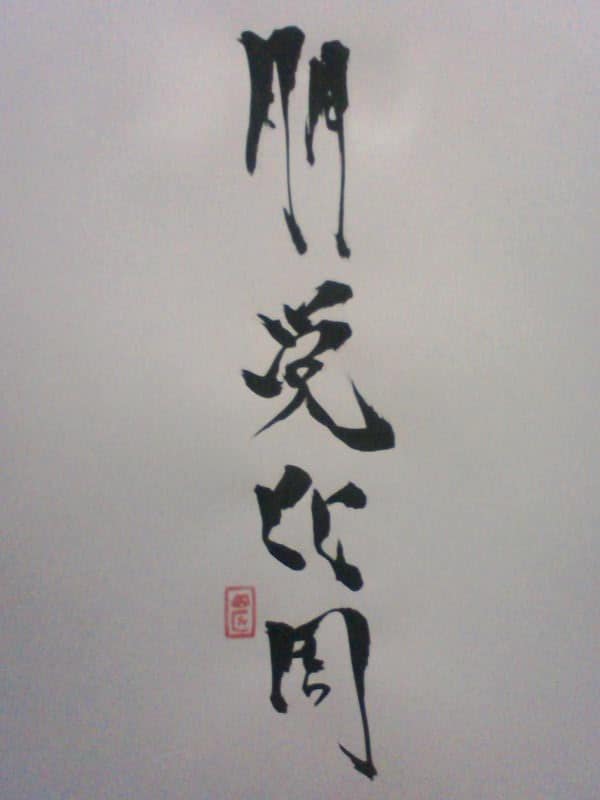 朋党比周